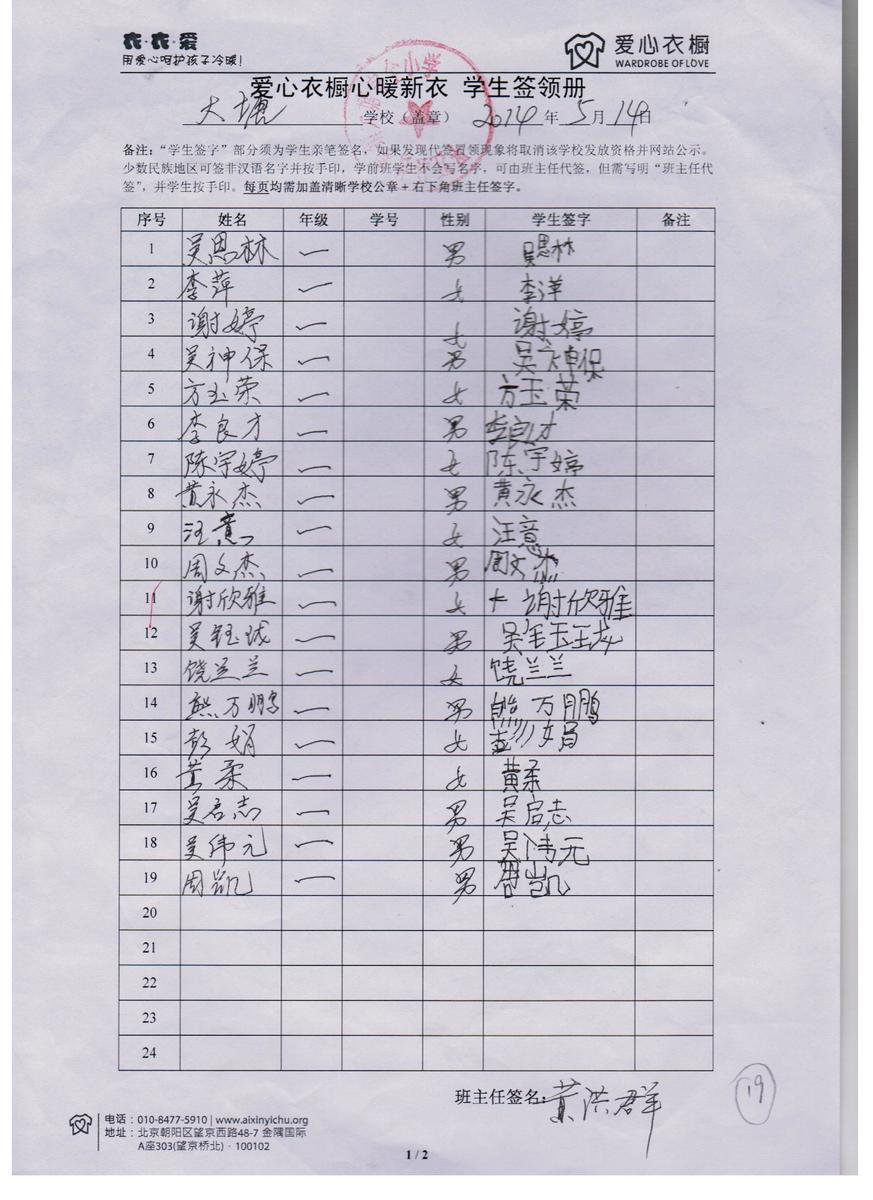 衣·衣·爱
用爱心呵护孩子冷暖!
爱心衣橱
WARDROBE OF LOVE
爱心衣橱心暖新衣 学生签领册
大塘 学校（盖章） 2014 年 5 月 14 日
备注：“学生签字”部分须为学生亲笔签名，如果发现代签冒领现象将取消该学校发放资格并网站公示。
少数民族地区可签非汉语名字并按手印，学前班学生不会写名字，可由班主任代签，但需写明“班主任代
签”，并学生按手印。每页均需加盖清晰学校公章+右下角班主任签字。
序号 姓名 年级 学号 性别 学生签字 备注
1 吴思林 一 男 吴思林
2 李萍 一 女 李洋
3 谢婷 一 女 谢婷
4 吴神保 一 男 吴神保
5 方玉荣 一 女 方玉荣
6 李良才 一 男 李良才
7 陈宇婷 一 女 陈宇婷
8 黄永杰 一 男 黄永杰
9 汪意 一 女 汪意
10 周文杰 一 男 周文杰
11 谢欣雅 一 女 谢欣雅
12 吴钰珑 一 男 吴钰珑
13 饶兰兰 一 女 饶兰兰
14 熊万鹏 一 男 熊万鹏
15 彭娟 一 女 彭娟
16 黄柔 一 女 黄柔
17 吴启志 一 男 吴启志
18 吴伟元 一 男 吴伟元
19 周凯 一 男 周凯
20
21
22
23
24
班主任签名：黄洪群
19
电话：010-8477-5910 | www.aixinyichu.org
地址：北京朝阳区望京西路48-7 金隅国际
A座303(望京桥北)·100102
1 / 2